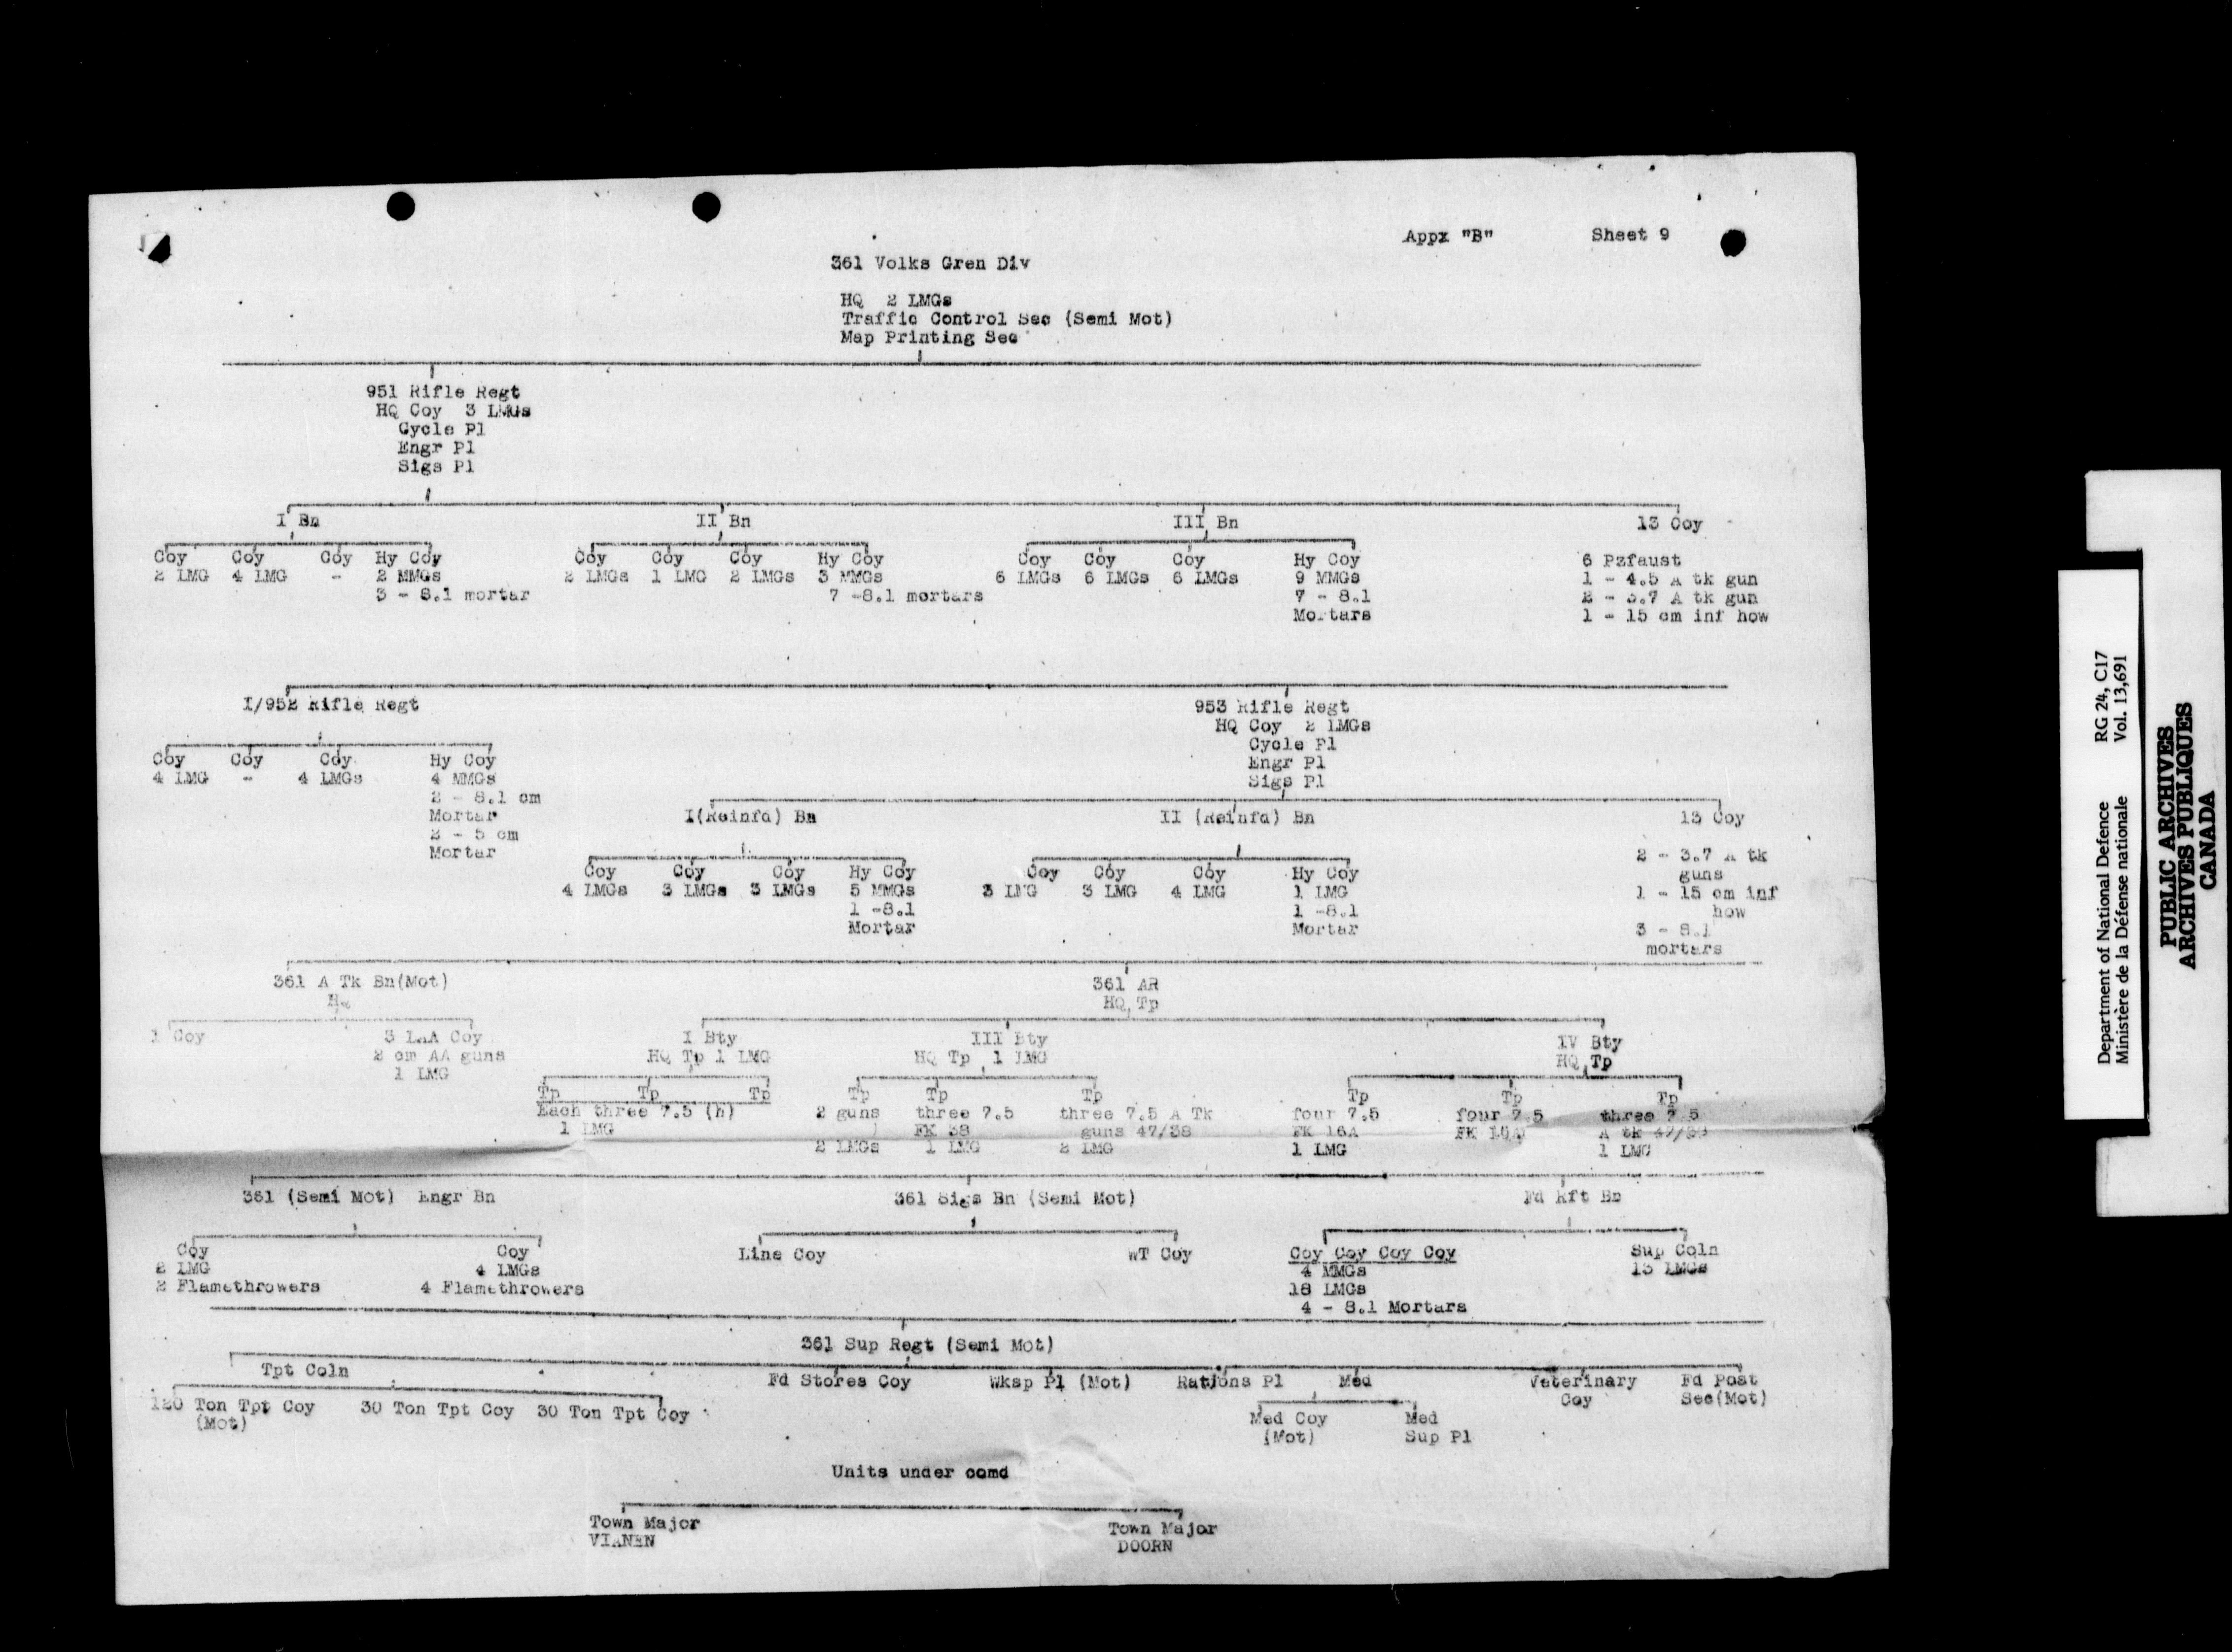 Appx "B" Sheet 9
361 Volks Gren Div
HQ 2 LMGs
Traffic Control Sec (Semi Mot)
Map Printing Sec
951 Rifle Regt
HQ Coy 3 LMGs
Cycle Pl
Engr Pl
Sigs Pl
I Bn II Bn III Bn 13 Coy
Coy Coy Coy Hy Coy Coy Coy Coy Hy Coy Coy Coy Coy Hy Coy 6 Pzfaust
2 LMG 4 LMG - 2 MMGs 2 LMGs 1 LMG 2 LMGs 3 MMGs 6 LMGs 6 LMGs 6 LMGs 9 MMGs 1 - 4.5 A tk gun
3 - 8.1 mortar 7 -8.1 mortars 7 - 8.1 2 - 3.7 A tk gun
Mortars 1 - 15 cm inf how
I/952 Rifle Regt 953 Rifle Regt
HQ Coy 2 LMGs
Cycle Pl
Engr Pl
Sigs Pl
Coy Coy Coy Hy Coy
4 LMG - 4 LMGs 4 MMGs
2 - 8.1 cm
Mortar
2 - 5 cm
Mortar
I(Reinfd) Bn II (Reinfd) Bn 13 Coy
Coy Coy Coy Hy Coy Coy Coy Coy Hy Coy
4 LMGs 3 LMGs 3 LMGs 5 MMGs 3 LMG 3 LMG 4 LMG 1 LMG
1 -8.1 1 -8.1
Mortar Mortar
2 - 3.7 A tk
guns
1 - 15 cm inf
how
3 - 8.1
mortars
361 A Tk Bn(Mot) 361 AR
HQ HQ Tp
1 Coy 3 LAA Coy I Bty III Bty IV Bty
2 cm AA guns HQ Tp 1 LMG HQ Tp 1 LMG HQ Tp
1 LMG
Tp Tp Tp Tp Tp Tp Tp Tp Tp
Each three 7.5 (h) 2 guns three 7.5 three 7.5 A Tk four 7.5 four 7.5 three 7.5
1 LMG ) FK 38 guns 47/38 FK 16A FK A tk
2 LMGs 1 LMG 2 LMG 1 LMG 1 LMG
361 (Semi Mot) Engr Bn 361 Sigs Bn (Semi Mot) Fd Rft Bn
Coy Coy Line Coy WT Coy Coy Coy Coy Coy Sup Coln
2 LMG 4 LMGs 4 MMGs 13 LMGs
2 Flamethrowers 4 Flamethrowers 18 LMGs
4 - 8.1 Mortars
361 Sup Regt (Semi Mot)
Tpt Coln Fd Stores Coy Wksp Pl (Mot) Rations Pl Med Veterinary Fd Post
Coy Sec(Mot)
120 Ton Tpt Coy 30 Ton Tpt Coy 30 Ton Tpt Coy
(Mot)
Med Coy Med
(Mot) Sup Pl
Units under comd
Town Major Town Major
VIANEN DOORN
Department of National Defence RG 24, C17
Ministère de la Défense nationale Vol. 13,691
PUBLIC ARCHIVES
ARCHIVES PUBLIQUES
CANADA